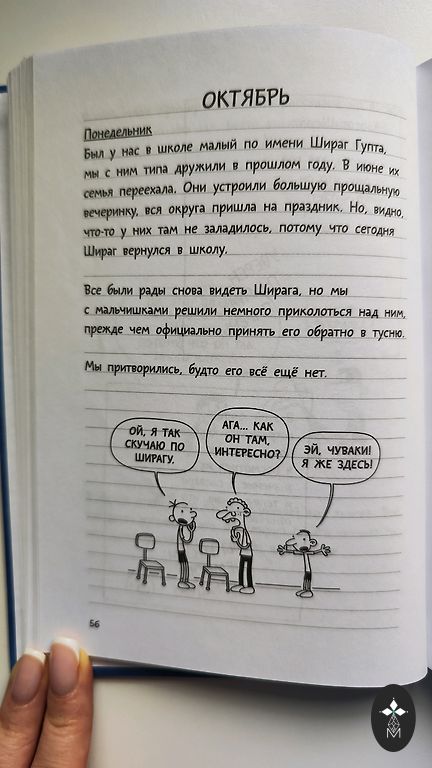 ОКТЯБРЬ
Понедельник
Был у нас в школе малый по имени Шираг Гупта,
мы с ним типа дружили в прошлом году. В июне их
семья переехала. Они устроили большую прощальную
вечеринку, вся округа пришла на праздник. Но, видно,
что-то у них там не заладилось, потому что сегодня
Шираг вернулся в школу.
Все были рады снова видеть Ширага, но мы
с мальчишками решили немного приколоться над ним,
прежде чем официально принять его обратно в тусню.
Мы притворились, будто его всё ещё нет.
ОЙ, Я ТАК
СКУЧАЮ ПО
ШИРАГУ.
АГА... КАК
ОН ТАМ,
ИНТЕРЕСНО?
ЭЙ, ЧУВАКИ!
Я ЖЕ ЗДЕСЬ!
56
М